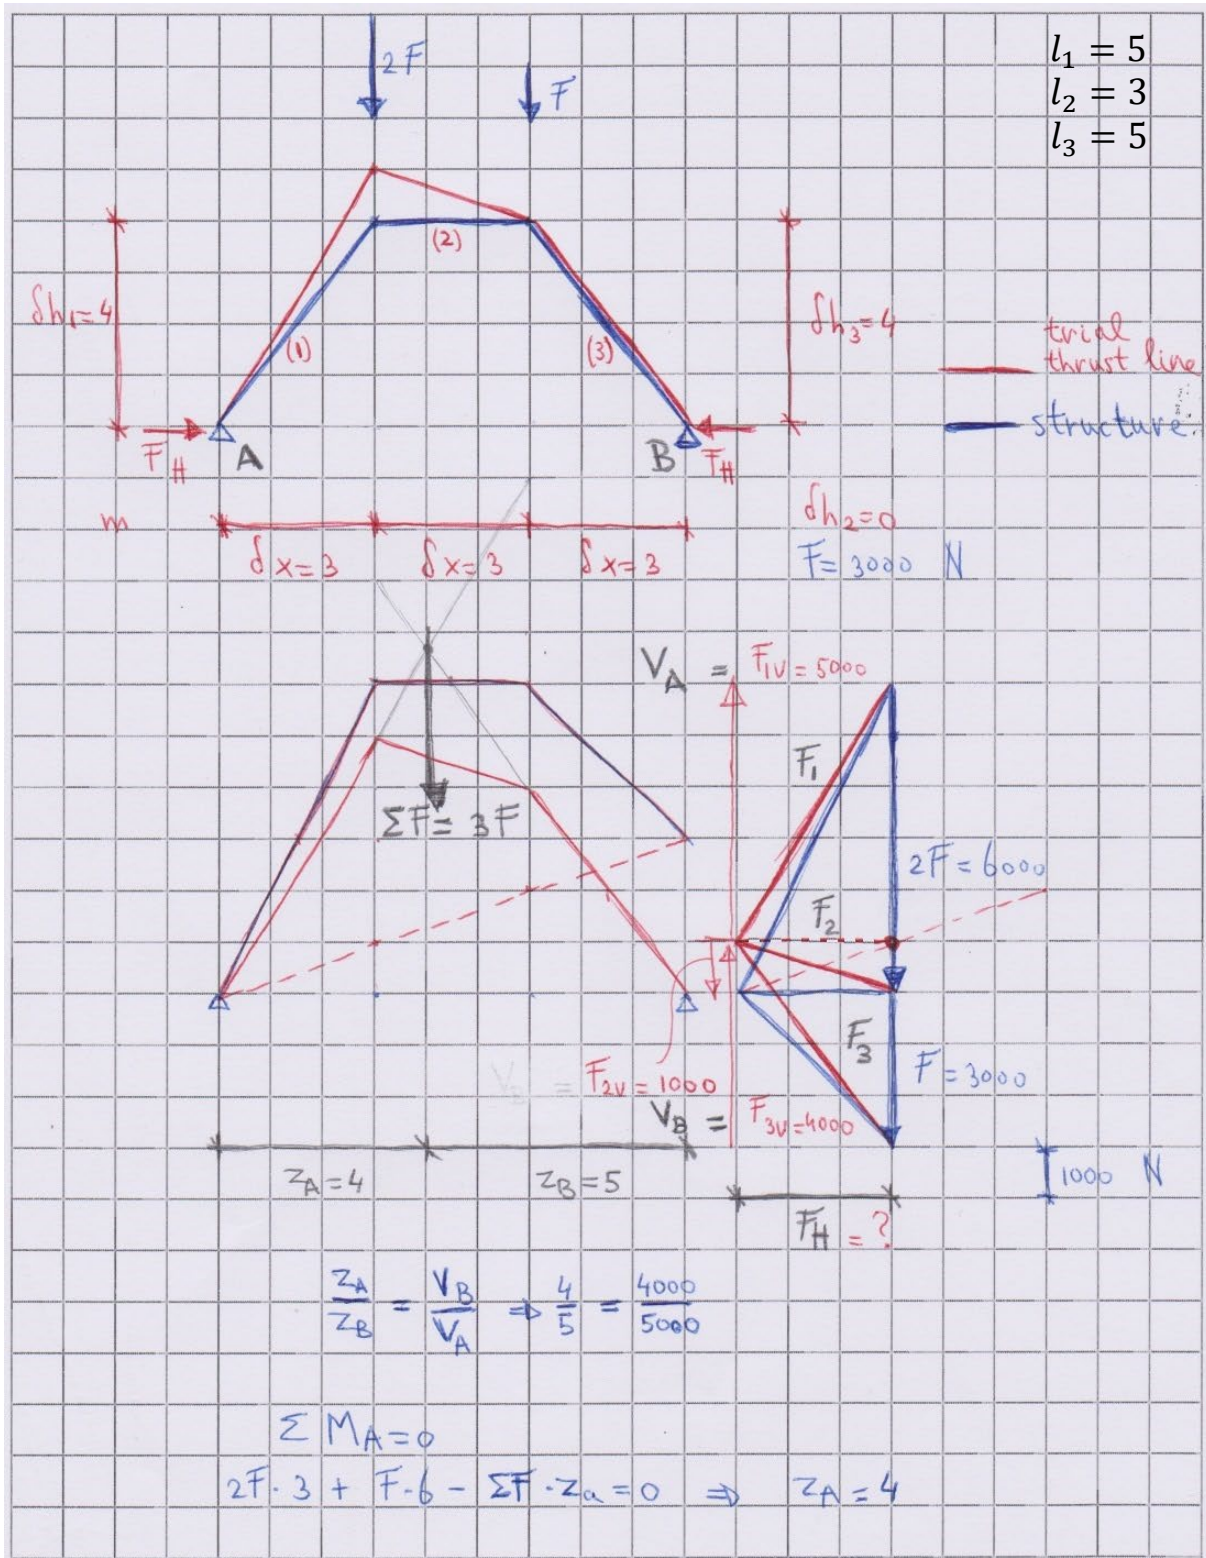 l₁ = 5
l₂ = 3
l₃ = 5
2F
F
δh₁=4
(1)
(2)
(3)
δh₃=4
trial
thrust line
structure.
F_H
A
B
F_H
m
δx=3
δx=3
δx=3
δh₂=0
F = 3000 N
ΣF = 3F
V_A = F₁ᵥ = 5000
F₁
2F = 6000
F₂
F₃
V_B = F₂ᵥ = 1000
F = 3000
V_B = F₃ᵥ=4000
z_A=4
z_B=5
1000 N
F_H = ?
z_A/z_B = V_B/V_A ⇒ 4/5 = 4000/5000
Σ M_A=0
2F·3 + F·6 - ΣF·z_a=0 ⇒ z_A=4